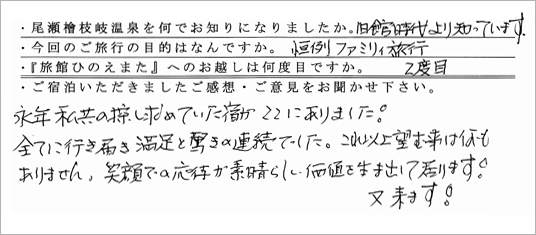 ・尾瀬檜枝岐温泉を何でお知りになりましたか。旧館時代より知っています。
・今回のご旅行の目的はなんですか。 恒例ファミリィ旅行
・『旅館ひのえまた』へのお越しは何度目ですか。 2度目
・ご宿泊いただきましたご感想・ご意見をお聞かせ下さい。
永年私共の探し求めていた宿がココにありました!
全てに行き届き満足と驚きの連続でした。これ以上望む事は何も
ありません、笑顔での応待が素晴らしい価値を生み出して居ります!
又来ます!